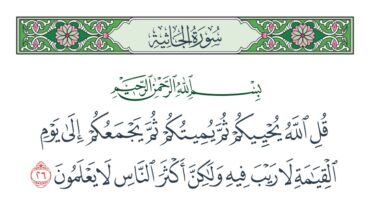 سُورَةُ الجَاثِيَةِ
بِسْمِ اللَّهِ الرَّحْمَٰنِ الرَّحِيمِ
قُلِ اللَّهُ يُحْيِيكُمْ ثُمَّ يُمِيتُكُمْ ثُمَّ يَجْمَعُكُمْ إِلَىٰ يَوْمِ
الْقِيَامَةِ لَا رَيْبَ فِيهِ وَلَٰكِنَّ أَكْثَرَ النَّاسِ لَا يَعْلَمُونَ ٢٦